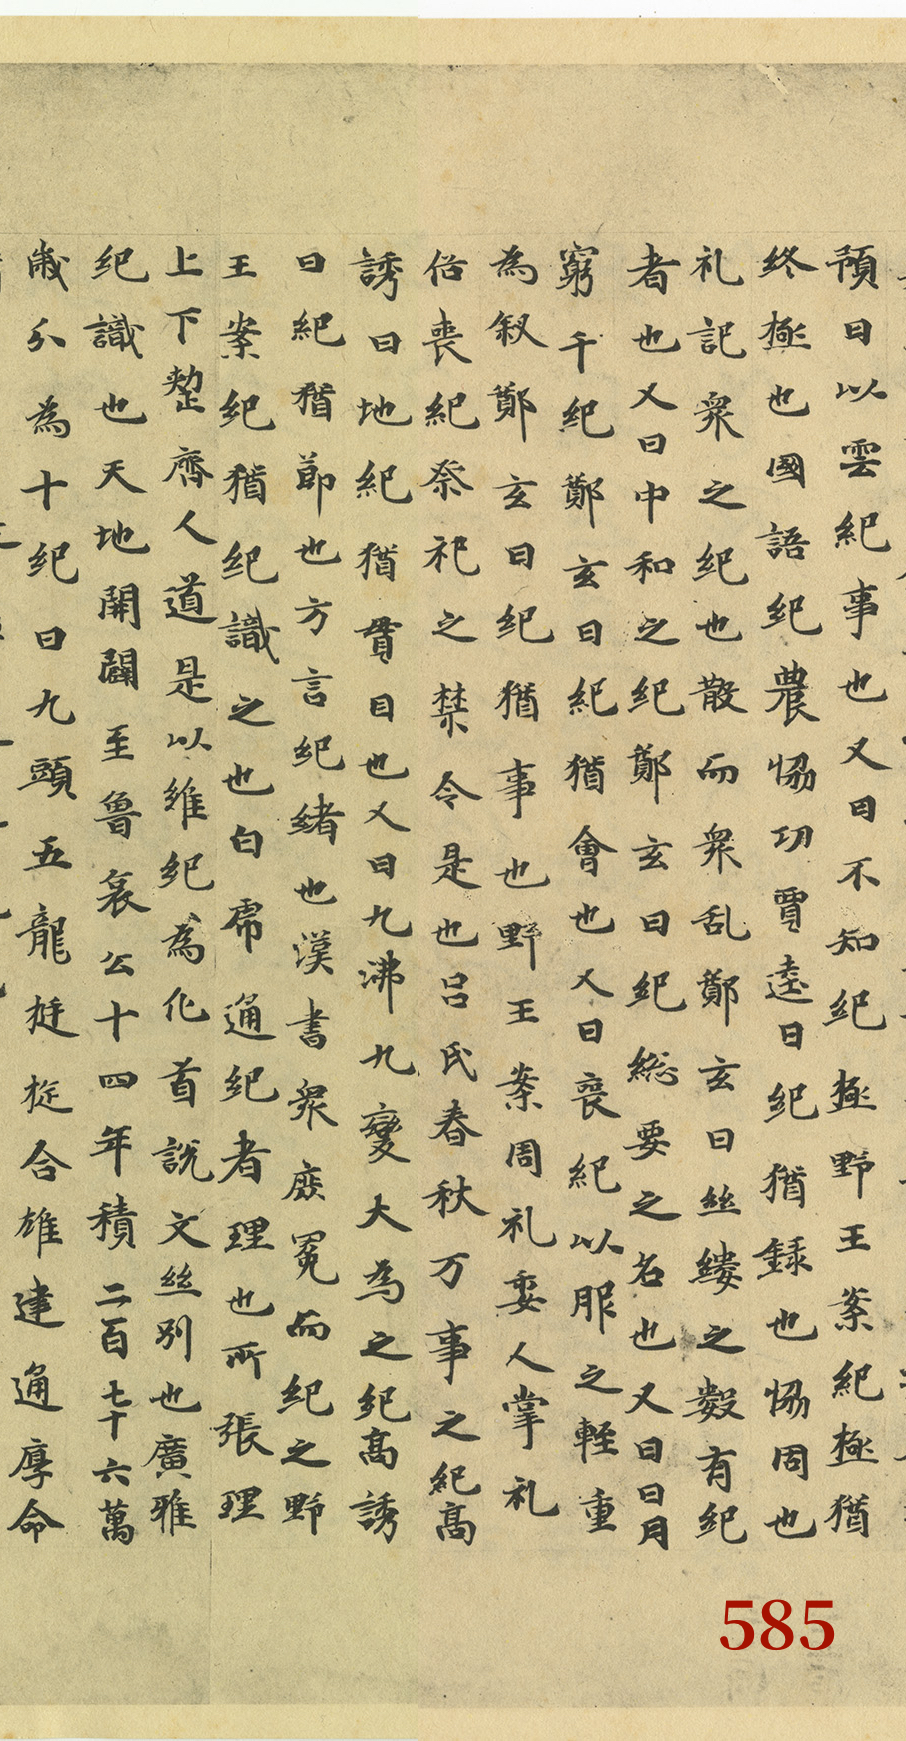 預曰以雲紀事也又曰不知紀極野王案紀極猶
終極也國語紀農協功賈逵曰紀猶録也協周也
礼記衆之紀也散而衆乱鄭玄曰絲縷之數有紀
者也又曰中和之紀鄭玄曰紀総要之名也又曰日月
窮千紀鄭玄曰紀猶會也又曰喪紀以服之輕重
為叙鄭玄曰紀猶事也野王案周礼委人掌礼
俗喪紀祭祀之禁令是也呂氏春秋万事之紀高
誘曰地紀猶貫目也又曰九沸九變大為之紀高誘
曰紀猶節也方言紀緒也漢書衆庶冤而紀之野
王案紀猶紀識之也白虎通紀者理也所張理
上下整齊人道是以維紀為化首説文絲別也廣雅
紀識也天地開闢至魯哀公十四年積二百七十六萬
歳分為十紀曰九頭五龍挺捉合雄建通厚命
585